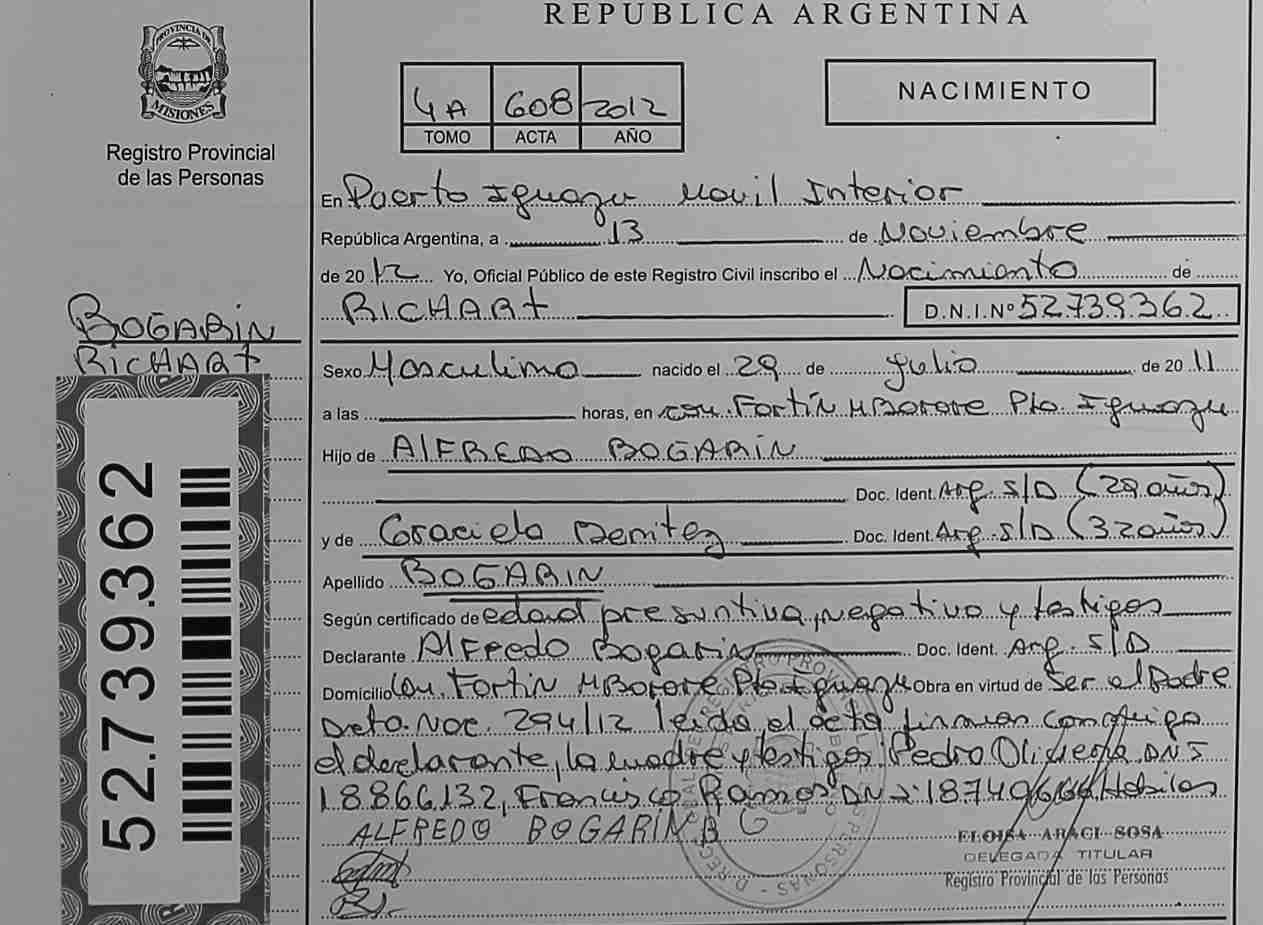 REPUBLICA ARGENTINA
PROVINCIA DE
MISIONES
Registro Provincial
de las Personas
4A 608 2012
TOMO ACTA AÑO
NACIMIENTO
En Puerto Iguazu Movil Interior
República Argentina, a 13 de Noviembre
de 2012 Yo, Oficial Público de este Registro Civil inscribo el Nacimiento de
RICHART D.N.I.Nº 52.739.362
BOGARIN
RICHART
Sexo Masculino nacido el 29 de Julio de 2011
a las horas, en com. Fortín MBorore Pto. Iguazu
Hijo de ALFREDO BOGARIN
Doc. Ident. Arg. S/D (29 años)
y de Graciela Benitez Doc. Ident. Arg. S/D (32 años)
Apellido BOGARIN
Según certificado de edad presuntiva, negativo y testigos
Declarante Alfredo Bogarin Doc. Ident. Arg. S/D
Domicilio Com. Fortin MBorore Pto Iguazu Obra en virtud de Ser el Padre
Dcto. Nac. 294/12 leida el acta firman conmigo
el declarante, la madre y testigos Pedro DNI
18866132, Francisco Ramos DNI: Habiles
ALFREDO BOGARIN B G
ELOISA ARACI SOSA
DELEGADA TITULAR
Registro Provincial de las Personas
52.739.362